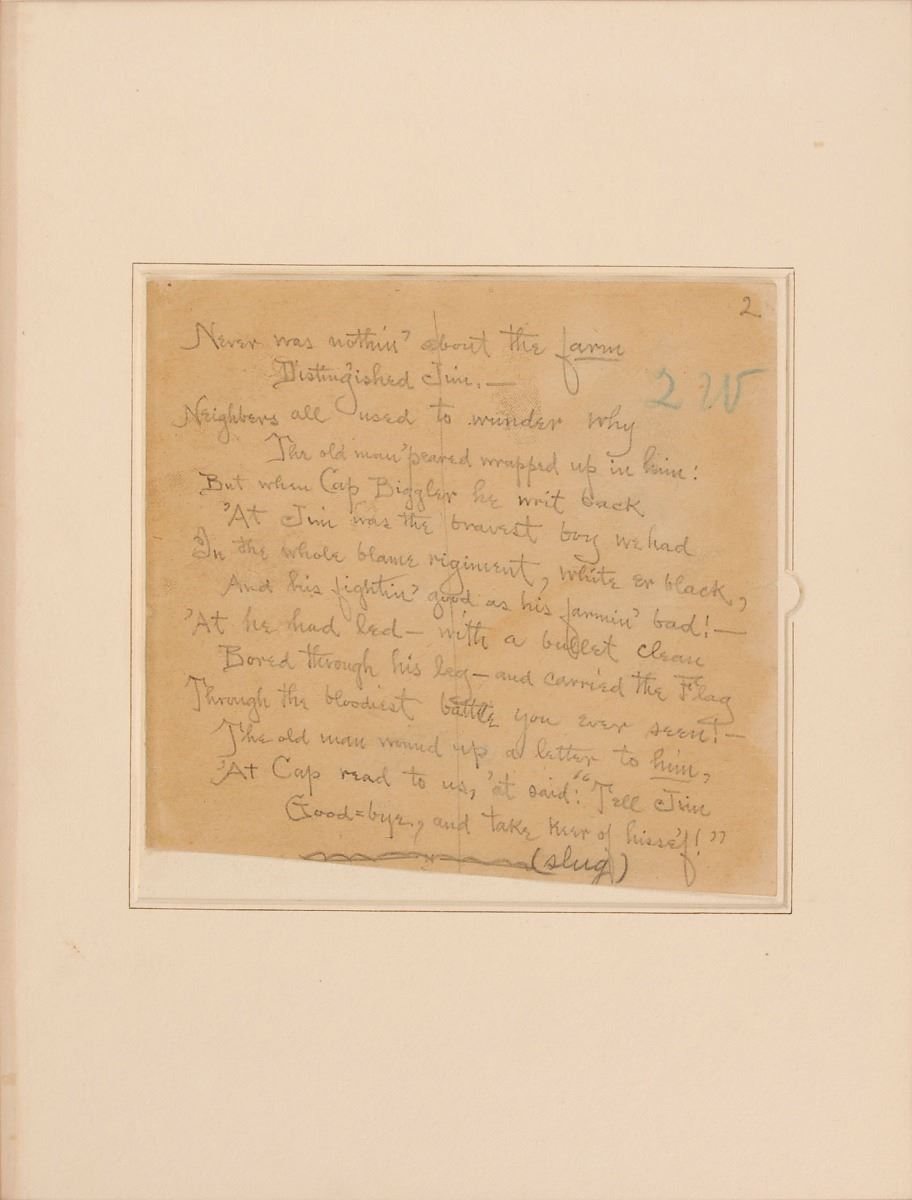 2
Never was nothin' about the farm
Distingished Jim.—
2 W
Neighbers all used to wunder why
The old man 'peared wrapped up in him:
But when Cap Biggler he writ back
'At Jim was the bravest boy we had
In the whole blame rigiment, white er black,
And his fightin' good as his farmin' bad!—
'At he had led— with a bullet clean
Bored through his leg— and carried the Flag
Through the bloodiest battle you ever seen!—
The old man wound up a letter to him,
'At Cap read to us, 'at said: "Tell Jim
Good=bye, and take keer of hisse'f!"
(slug)